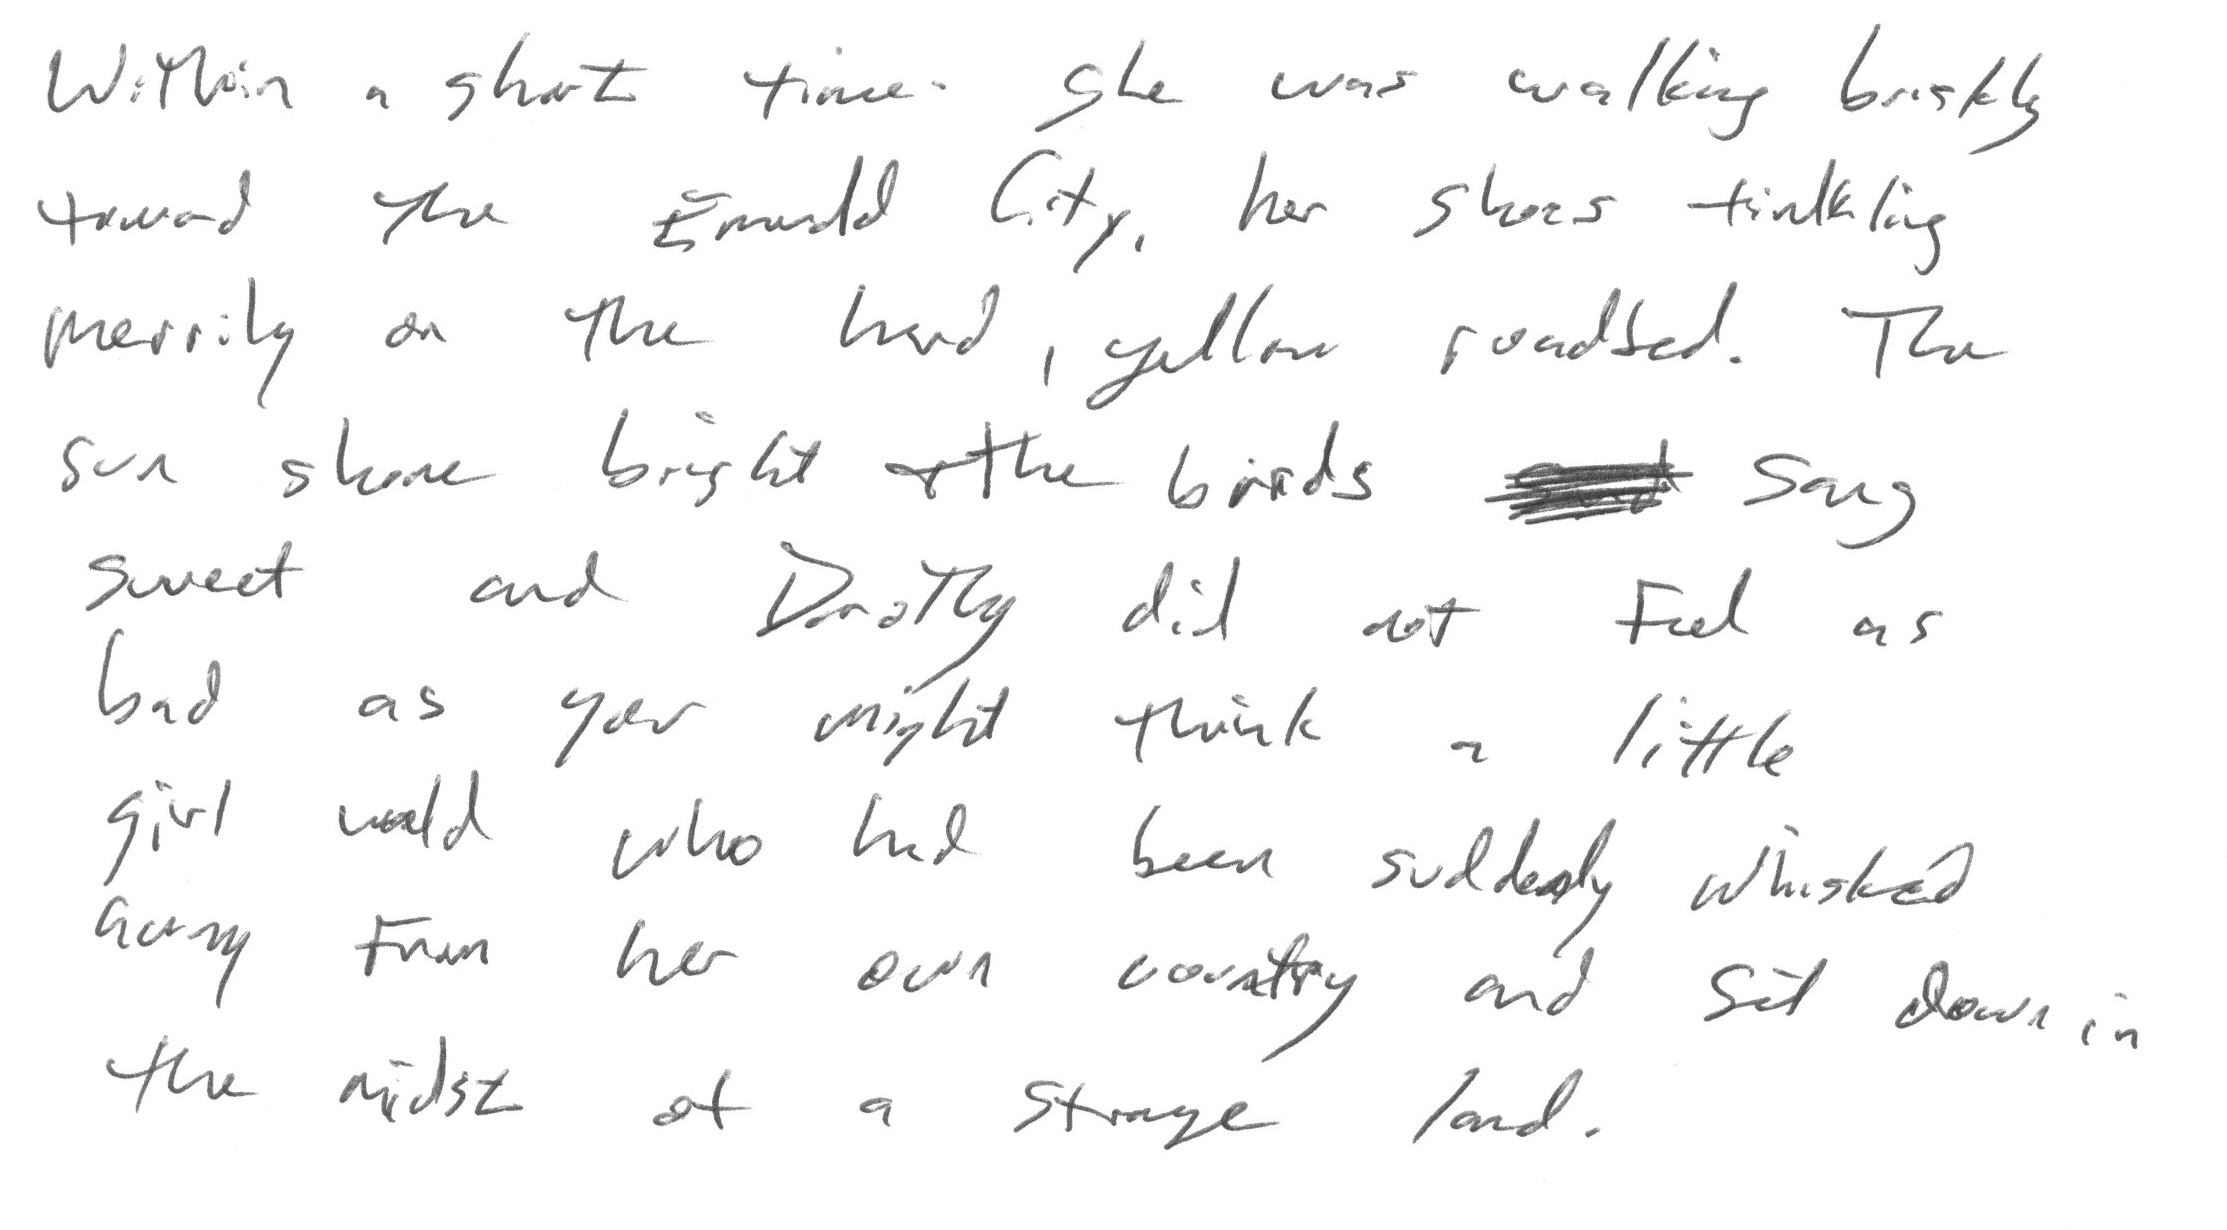 Within a short time she was walking briskly
toward the Emerald City, her shoes tinkling
merrily on the hard, yellow roadbed. The
sun shone bright + the birds sang
sweet and Dorothy did not feel as
bad as you might think a little
girl would who had been suddenly whisked
away from her own country and set down in
the midst of a strange land.